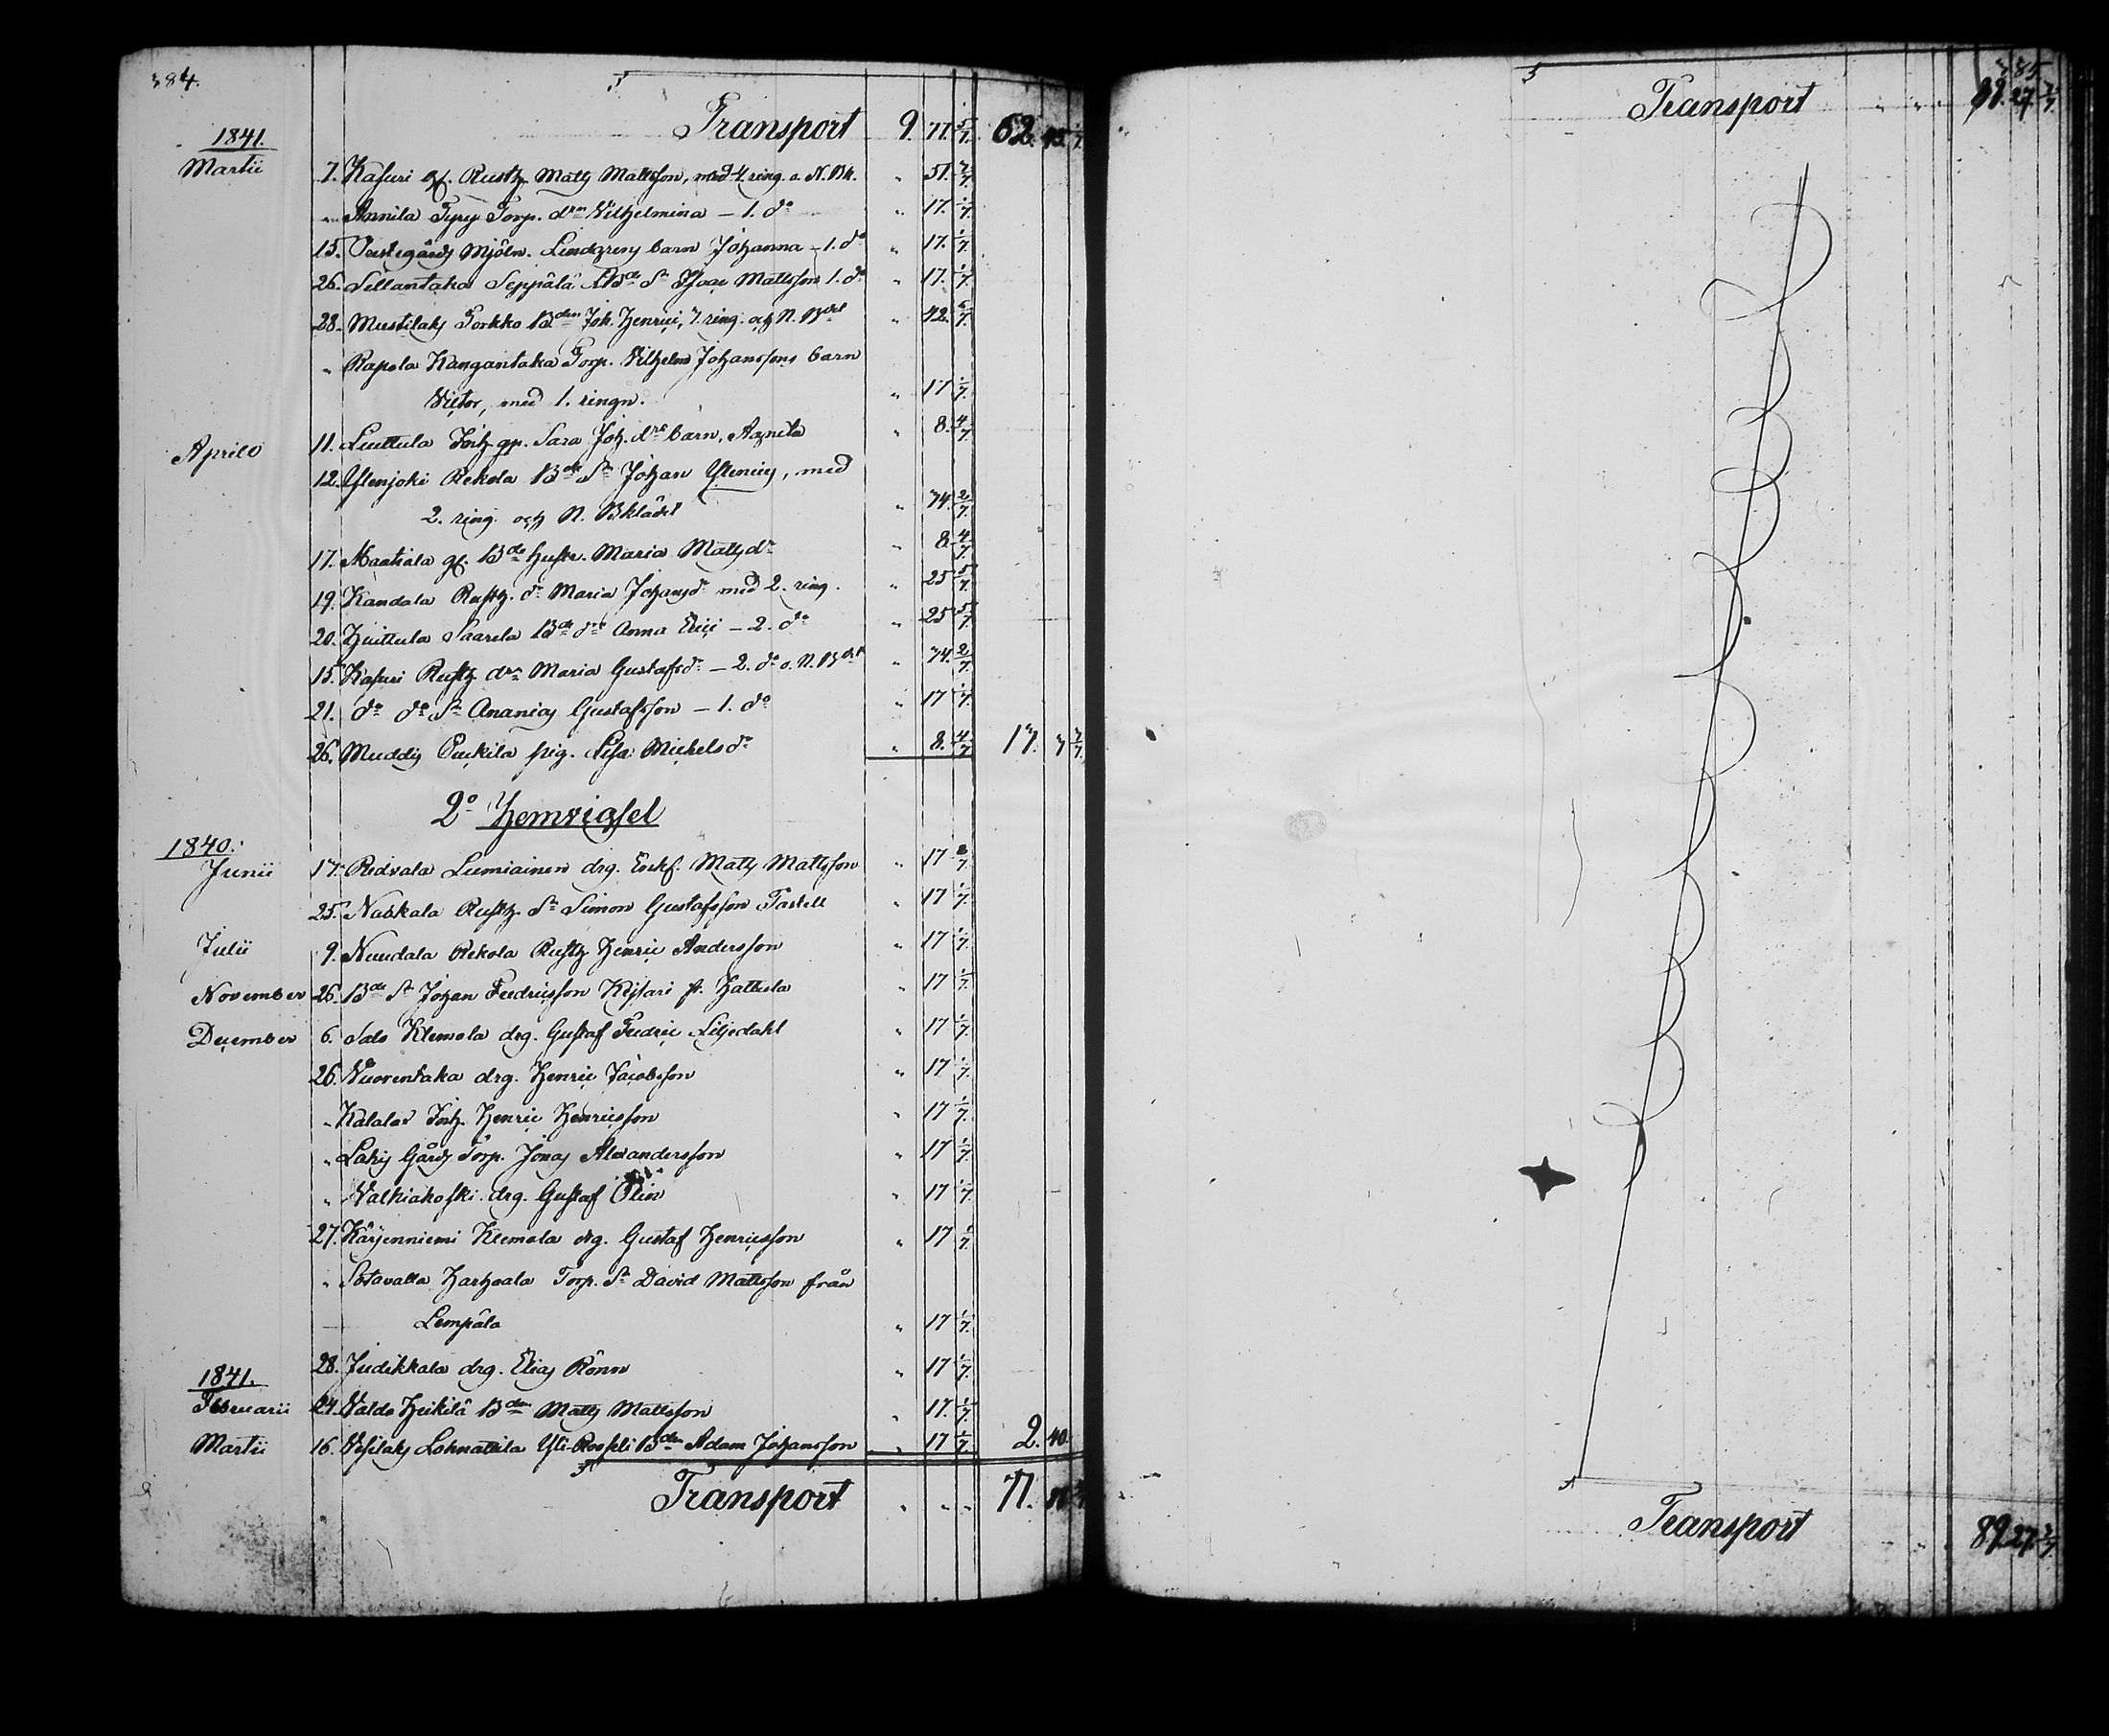 384.
Transport 9. 77. 5/7. 62. 45. 1/7.
1841.
Martii 7. Kasuri gf. Rusth. Matts Mattsson, med 4 ring. o. N. Bk. " 51. 3/7.
" Annila Tyry Torp. drn Vilhelmina – 1. do " 17. 1/7.
15. Prestegårds Mjöln. Lindgrens barn Johanna – 1. do " 17. 1/7.
26. Sillantaka Seppälä Sn Isaac Mattsson 1. do " 17. 1/7.
28. Mustilaks Torkko Bden Joh. Henrici, 1. ring. och N. " 42. 6/7.
" Rapola Kangantaka Torp. Vilhelm Johanssons barn
Victor, med 1. ringn. " 17 1/7.
Aprill 11. Liuttula gp. Sara Joh. drs barn, Agneta " 8. 4/7.
12. Ylenjoki Rekola Bde Sn Johan Ylenius, med
2. ring. och N. Bklädet " 74. 2/7.
17. Maatiala gf. Bde hustr. Maria Mattsdr " 8. 4/7.
19. Kandala Rusth. dr Maria Johansdr med 2. ring. " 25 5/7.
20. Huittula Saarela Bde drn Anna Erici – 2. do " 25 5/7.
15. Kasuri Rusth. drn Maria Gustafsdr – 2. do o. N. " 74. 2/7.
21. do do Sn Ananias Gustafsson – 1. do " 17 1/7.
26. Muddis pig. Lisa Michelsdr " 8. 4/7. 17. 7 3/7.
2o Hemvigsel
1840.
Junii 17. Ridvala Lumiainen drg. Enkf. Matts Mattsson " 17 1/7
25. Nabkala Rusth. Sn Simon Gustafsson Tastell " 17 1/7.
Julii 9. Nuudala Rekola Rusth. Henric Andersson " 17 1/7.
November 26. Bde Sn Johan Fredricsson Kejsari fr. Hattula " 17 1/7.
December 6. Salo Klemola drg. Gustaf Fredric Liljedahl " 17 1/7.
26. Vuorentaka drg. Henric Jacobsson " 17 1/7.
" Kalala Henric Henricsson " 17 1/7.
" Lahis Gårds Torp. Jonas Alexandersson " 17 1/7.
" Valkiakoski drg. Gustaf Olin " 17 1/7.
27. Kärjenniemi Klemola drg. Gustaf Henricsson " 17 1/7.
" Sotavalla Harhala Torp. Sn David Mattsson från
Lempäla " 17 1/7.
28. Judikkala drg. Elias Rönn " 17 1/7.
1841.
Februarii 24. Valdo Heikilä Bden Matts Mattsson " 17. 1/7.
Martii 16. Vesilaks Lohnattila Yli-Rosseli Bden Adam Johansson " 17 1/7. 2. 40.
Transport " " " 77.
385.
Transport " " 89. 27 3/7.
Transport " " 89. 27. 3/7.